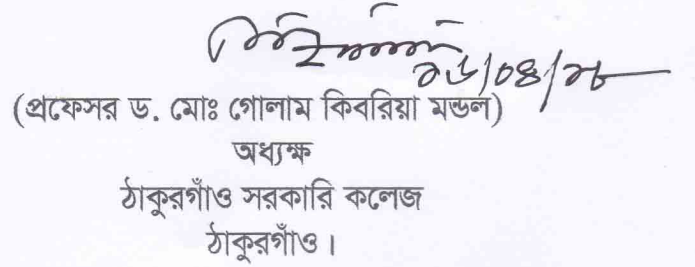 ২৬/০৪/১৮
(প্রফেসর ড. মোঃ গোলাম কিবরিয়া মন্ডল)
অধ্যক্ষ
ঠাকুরগাঁও সরকারি কলেজ
ঠাকুরগাঁও।